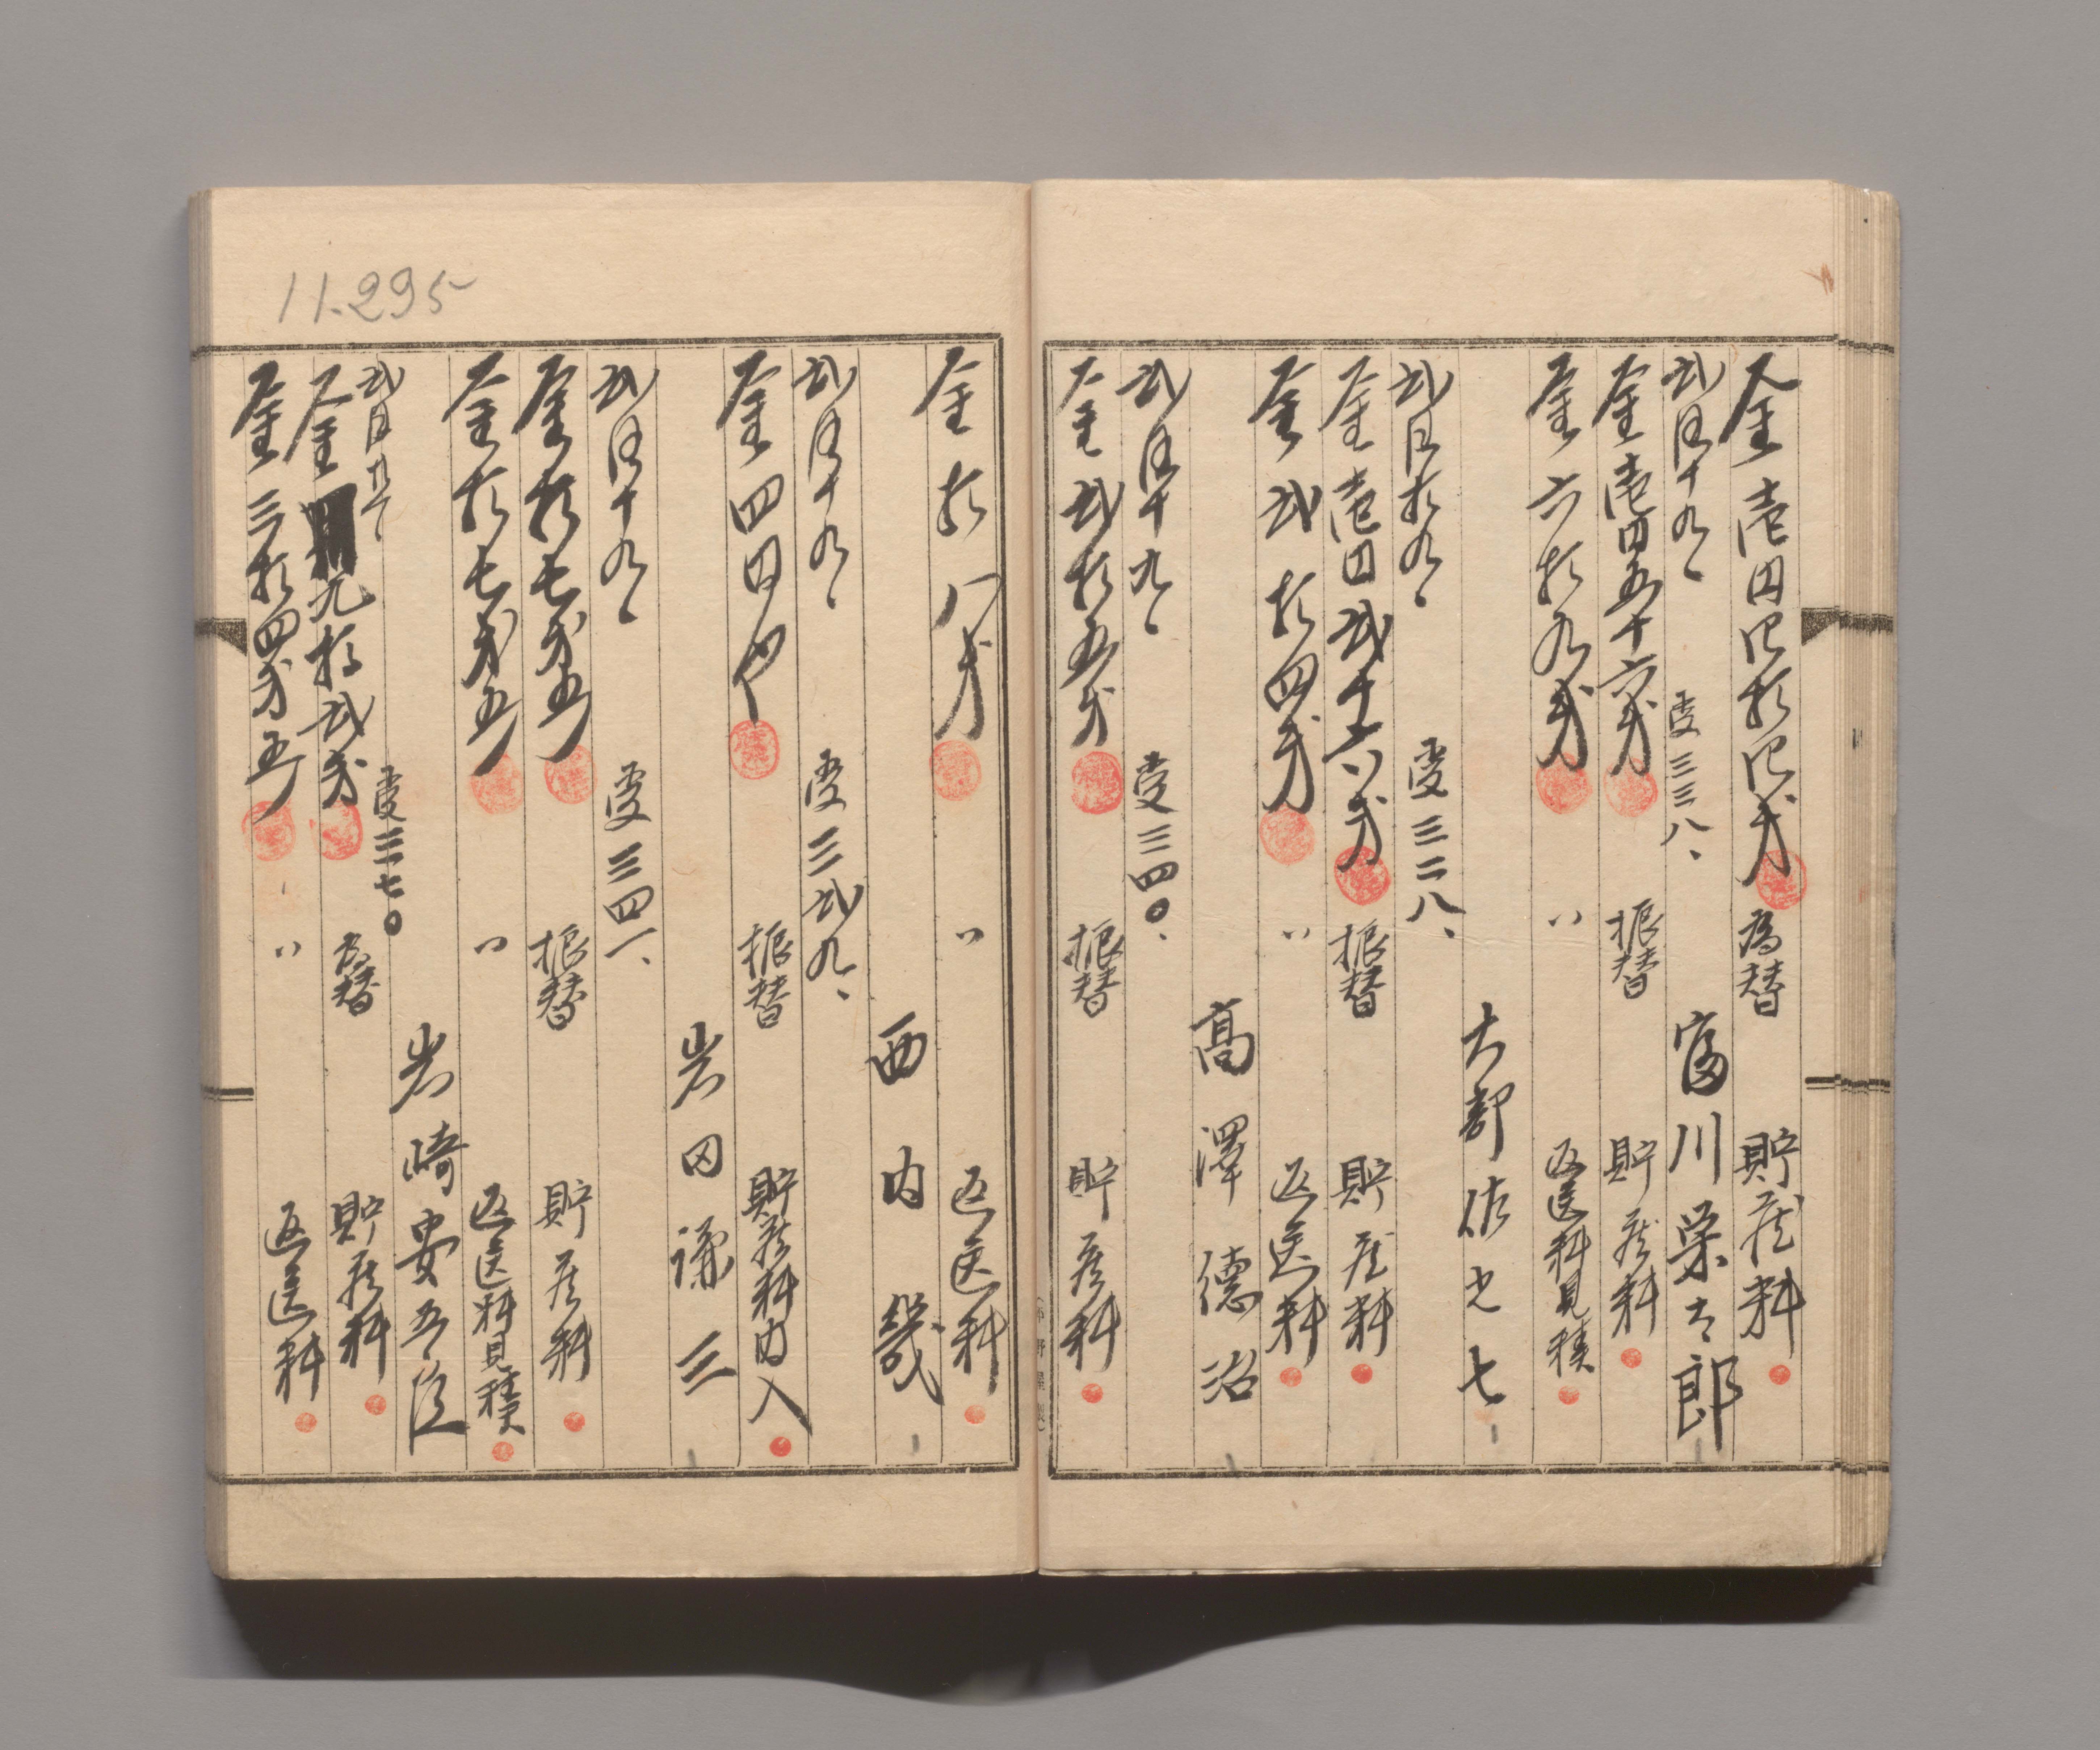 金壱円四拾四銭 為替 貯蔵料
弐月十九、 受三三八、 富川栄太郎
金壱円五十六銭 振替 貯蔵料
金六拾九銭 〃 返送料見積
大部佐七
弐月拾九、 受三二八、
金壱円弐十六銭 振替 貯蔵料
金弐拾四銭 〃 返送料
髙澤德治
弐月十九、 受三四〇、
金弐拾五銭 振替 貯蔵料
金拾八銭 〃 返送料
西内幾
弐月十九、 受三弐九、
金四円也 振替 貯蔵料内入
岩田謙三
弐月十九、 受三四一、
金拾七銭五 振替 貯蔵料
金拾七銭五 〃 返送料見積
岩崎安五
弐月 受三七〇
金九拾弐銭 為替 貯蔵料
金三拾四銭五 〃 返送料
11.295